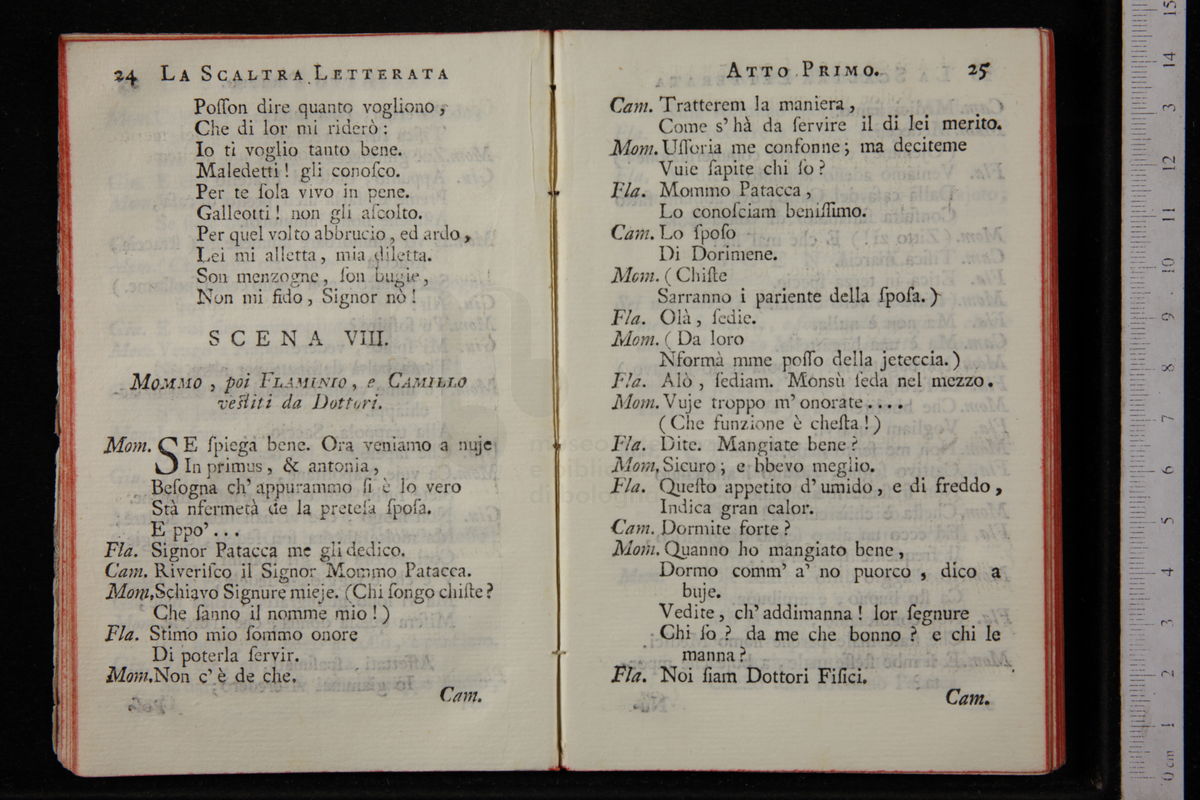 24 LA SCALTRA LETTERATA
Poſſon dire quanto vogliono,
Che di lor mi riderò:
Io ti voglio tanto bene.
Maledetti! gli conoſco.
Per te ſola vivo in pene.
Galleotti! non gli aſcolto.
Per quel volto abbrucio, ed ardo,
Lei mi alletta, mia diletta.
Son menzogne, ſon bugie,
Non mi fido, Signor nò!
SCENA VIII.
MOMMO, poi FLAMINIO, e CAMILLO
veſtiti da Dottori.
Mom. SE ſpiega bene. Ora veniamo a nuje
In primus, & antonia,
Beſogna ch' appurammo ſi è lo vero
Stà nfermetà de la preteſa ſpoſa.
E ppo'...
Fla. Signor Patacca me gli dedico.
Cam. Riveriſco il Signor Mommo Patacca.
Mom. Schiavo Signure mieje. (Chi ſongo chiſte?
Che ſanno il nomme mio!)
Fla. Stimo mio ſommo onore
Di poterla ſervir.
Mom. Non c' è de che.
Cam.
ATTO PRIMO. 25
Cam. Tratterem la maniera,
Come s' hà da ſervire il di lei merito.
Mom. Uſſoria me confonne; ma deciteme
Vuie ſapite chi ſo?
Fla. Mommo Patacca,
Lo conoſciam beniſſimo.
Cam. Lo ſpoſo
Di Dorimene.
Mom. (Chiſte
Sarranno i pariente della ſpoſa.)
Fla. Olà, ſedie.
Mom. (Da loro
Nformà mme poſſo della jeteccia.)
Fla. Alò, ſediam. Monsù ſeda nel mezzo.
Mom. Vuje troppo m' onorate....
(Che funzione è cheſta!)
Fla. Dite. Mangiate bene?
Mom. Sicuro; e bbevo meglio.
Fla. Queſto appetito d' umido, e di freddo,
Indica gran calor.
Cam. Dormite forte?
Mom. Quanno ho mangiato bene,
Dormo comm' a' no puorco, dico a
buje.
Vedite, ch' addimanna! lor ſegnure
Chi ſo? da me che bonno? e chi le
manna?
Fla. Noi ſiam Dottori Fiſici.
Cam.
0 cm 1 2 3 4 5 6 7 8 9 10 11 12 13 14 15